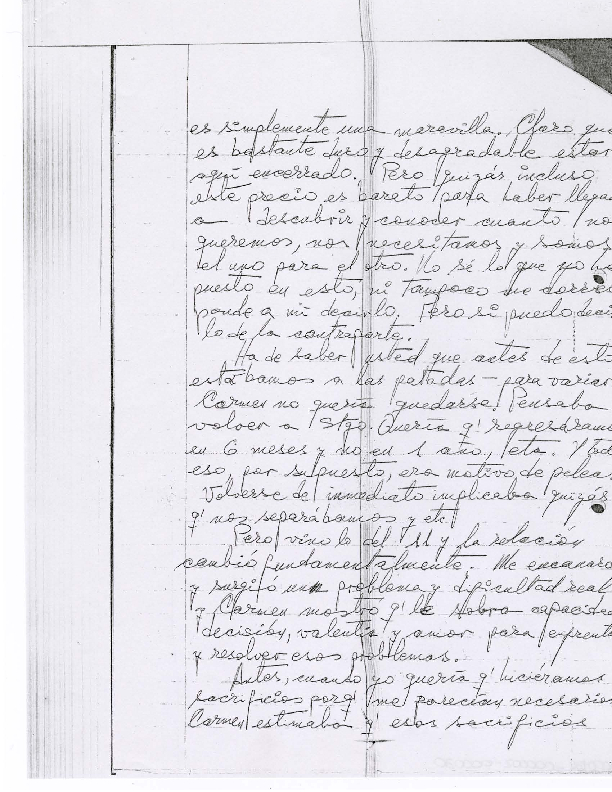 es simplemente una maravilla. Claro que
es bastante duro y desagradable estar
aquí encerrado. Pero quizás incluso
este precio es barato para haber llegad
a descubrir y conocer cuanto nos
queremos, nos necesitamos y somos
el uno para el otro. No sé lo que yo he
puesto en esto, ni tampoco me corres
ponde a mi decirlo. Pero si puedo deci
lo de la contraparte.
Ha de saber usted que antes de esto
estábamos a las patadas - para variar
Carmen no quería quedarse. Pensaba
volver a Stgo. Quería q' regresáramos
en 6 meses y no en 1 año, etc. Y tod
eso, por supuesto, era motivo de peleas
Volverse de inmediato implicaba quizás
q' nos separábamos y etc.
Pero vino lo del 11 y la relación
cambió fundamentalmente. Me encanaro
y surgió un problema y dificultad real
y Carmen mostró q' le sobra capacidad
decisión, valentía y amor para enfrenta
y resolver esos problemas.
Antes, cuando yo quería q' hiciéramos
sacrificios porq' me parecían necesarios
Carmen estimaba q' esos sacrificios